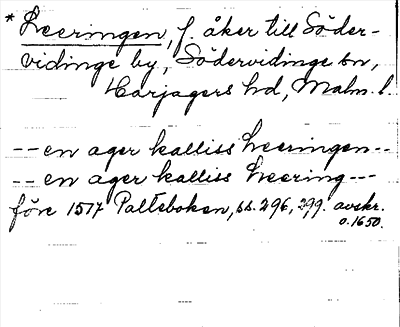 * Leeringen, f. åker till Söder-
vidinge by, Södervidinge sn,
Harjagers hd, Malm. l.
-- en ager kalliss Leeringen --
-- en ager kalliss Leering ---
före 1517 Palteboken, ss. 296, 299. avskr.
o. 1650.